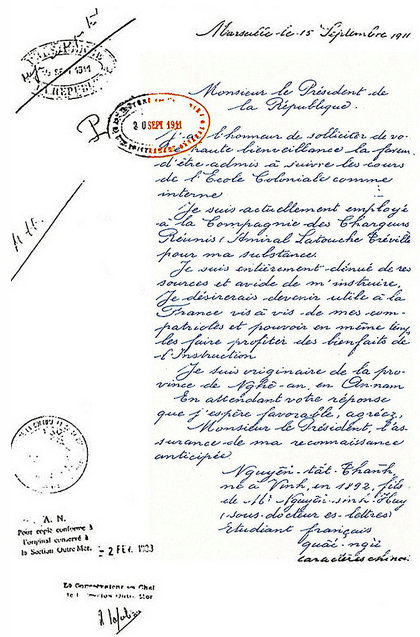 Marseille le 15 Septembre 1911
Monsieur le Président de
la République.
20 SEPT 1911
l'honneur de solliciter de vo-
haute bienveillance la faveur
d'être admis à suivre les cours
de l'École Coloniale comme
interne
Je suis actuellement employé
à la Compagnie des Chargeurs
Réunis (Amiral Latouche Tréville
pour ma substance
Je suis entièrement dénué de res
sources et avide de m'instruire.
Je désirerais devenir utile à la
France vis à vis de mes com-
patriotes et pouvoir en même
les faire profiter des bienfaits de
l'Instruction
Je suis originaire de la pro-
vince de Nghê-an, en Annam
En attendant votre réponse
que j'espère favorable, agréez,
Monsieur le Président, l'as-
surance de ma reconnaissance
anticipée
Nguyên-tât-Thanh
né à Vinh, en 1892, fils
de Mr Nguyên-sinh-Huy
(sous-docteur es-lettres)
Etudiant français
quôc-ngu
caractères chinoi
A. N.
Pour copie conforme à
l'original conservé à
la Section Outre Mer.
- 2 FEV. 1983
Le Conservateur en Chef